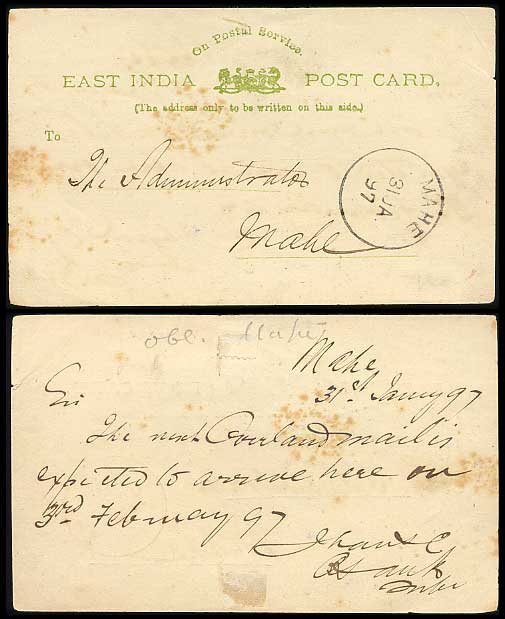 On Postal Service.
EAST INDIA POST CARD.
(The address only to be written on this side.)
To
The Administrator
Mahe
MAHE
31 JA
97
obl. Mahé
Mahe
31st Jany 97
Sir
The next Overland mail is
expected to arrive here on
3rd February 97